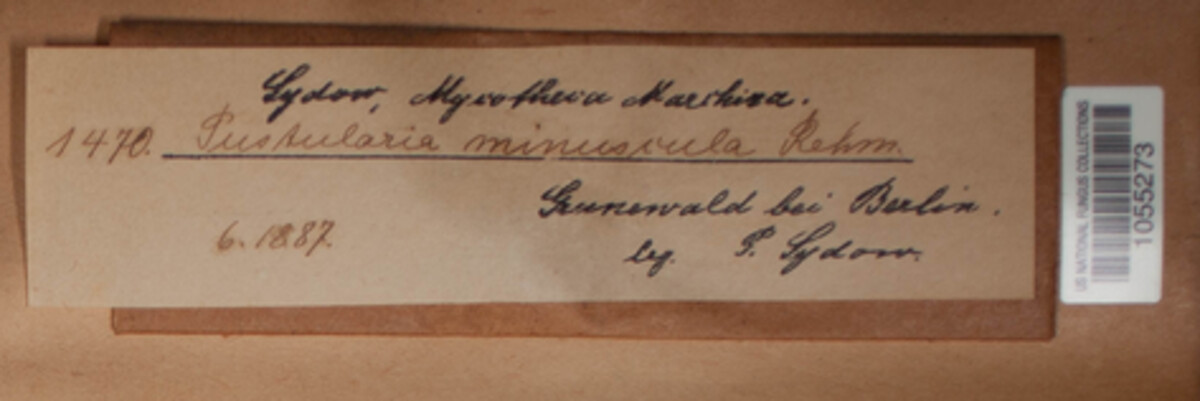 Sydow, Mycotheca Marchica.
1470. Pustularia minuscula Rehm.
Grunewald bei Berlin.
6. 1887.
leg. P. Sydow.
US NATIONAL FUNGUS COLLECTIONS
1055273